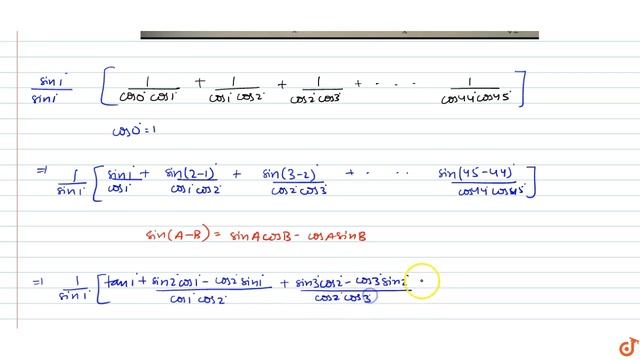 sin1° / sin1° [ 1 / cos0° cos1° + 1 / cos1° cos2° + 1 / cos2° cos3° + · · · 1 / cos44° cos45° ]
cos0° = 1
⇒ 1 / sin1° [ sin1° / cos1° + sin(2-1)° / cos1° cos2° + sin(3-2)° / cos2° cos3° + · · · sin(45-44)° / cos44° cos45° ]
sin(A-B) = sinA cosB - cosA sinB
⇒ 1 / sin1° [ tan1° + sin2° cos1° - cos2° sin1° / cos1° cos2° + sin3° cos2° - cos3° sin2° / cos2° cos3°
doubtnut